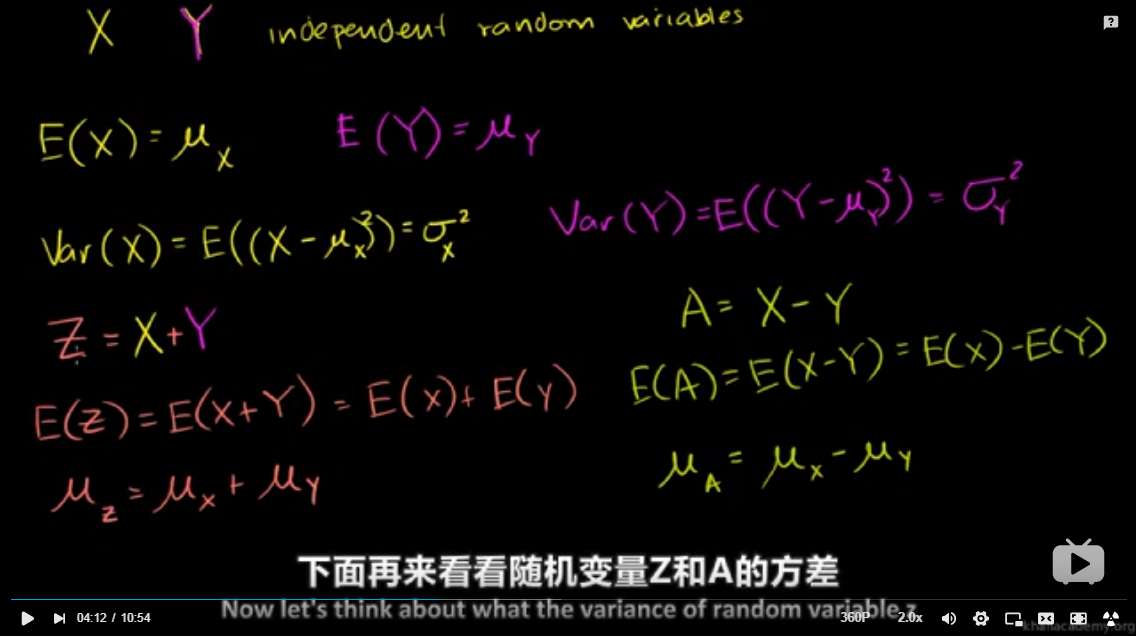 X Y independent random variables
E(X) = μ_X E(Y) = μ_Y
Var(X) = E((X - μ_X)²) = σ_X² Var(Y) = E((Y - μ_Y)²) = σ_Y²
Z = X + Y A = X - Y
E(Z) = E(X+Y) = E(x) + E(y) E(A) = E(X-Y) = E(X) - E(Y)
μ_Z = μ_X + μ_Y μ_A = μ_X - μ_Y
下面再来看看随机变量Z和A的方差
Now let's think about what the variance of random variable z
04:12 / 10:54 360P 2.0x
khanacademy.org